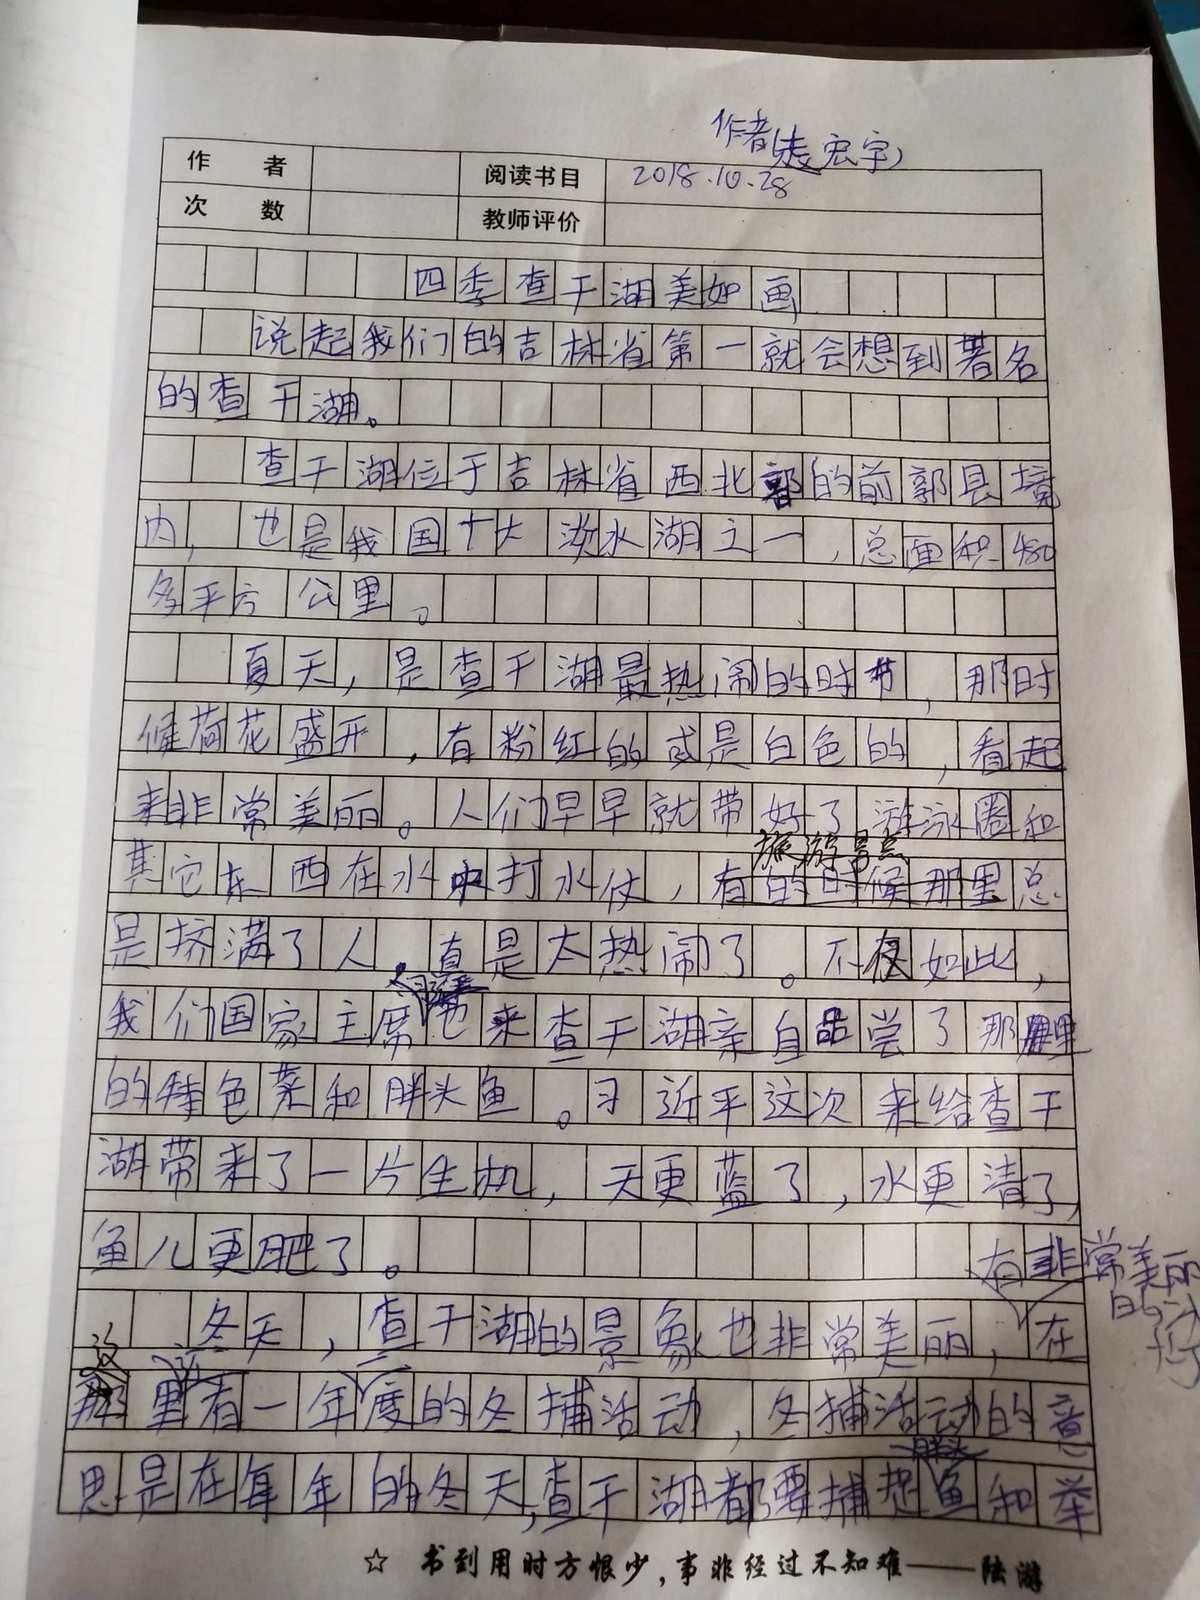 作者(袁宏宇)
作者 阅读书目 2018.10.28
次数 教师评价
四季查干湖美如画
说起我们的吉林省第一就会想到著名
的查干湖。
查干湖位于吉林省西北部的前郭县境
内,也是我国十大淡水湖之一,总面积480
多平方公里。
夏天,是查干湖最热闹的时节,那时
候荷花盛开,有粉红的或是白色的,看起
来非常美丽。人们早早就带好了游泳圈和
旅游景点
其它东西在水中打水仗,有的时候那里总
是挤满了人,真是太热闹了。不仅如此,
我们国家主席也来查干湖亲自品尝了那里
的特色菜和胖头鱼。习近平这次来给查干
湖带来了一片生机,天更蓝了,水更清了,
鱼儿更肥了。
有非常美丽
的
冬天,查干湖的景象也非常美丽,在
这
那里有一年一度的冬捕活动,冬捕活动的意
胖头
思是在每年的冬天,查干湖都要捕起鱼和举
☆ 书到用时方恨少,事非经过不知难——陆游